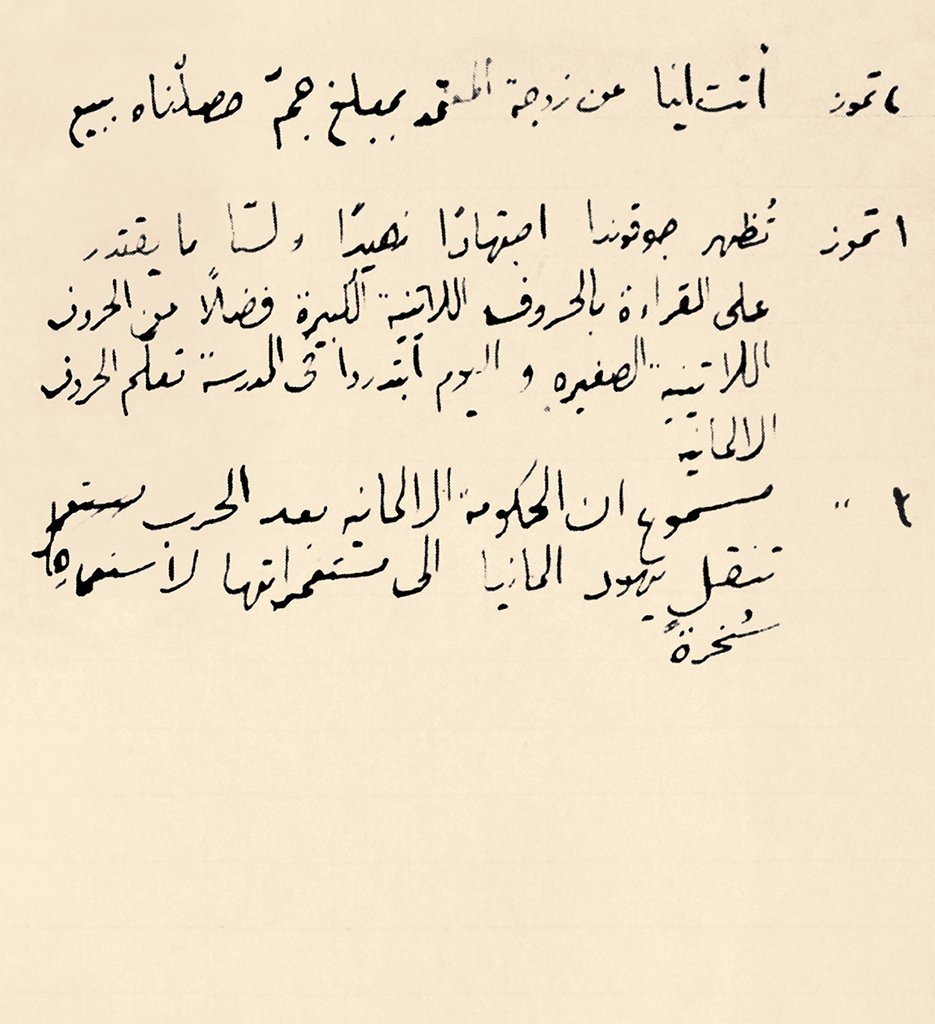 تموز أتت لينا عن زوجة المعتمد بمبلغ جمّ حصلّناه ببيع
١ تموز تُظهر جوقوندا اجتهادًا زهيدًا ولسّا ما يقتدر
على القراءة بالحروف اللاتينية الكبيرة فضلًا من الحروف
اللاتينية الصغيره و اليوم ابتدروا فى المدرسة تعلّم الحروف
الالمانية
٢ " مسموع ان الحكومة الالمانيه بعد الحرب
تنقل يهود المانيا الى مستعمراتها لاستعمالهم
سُخرةً